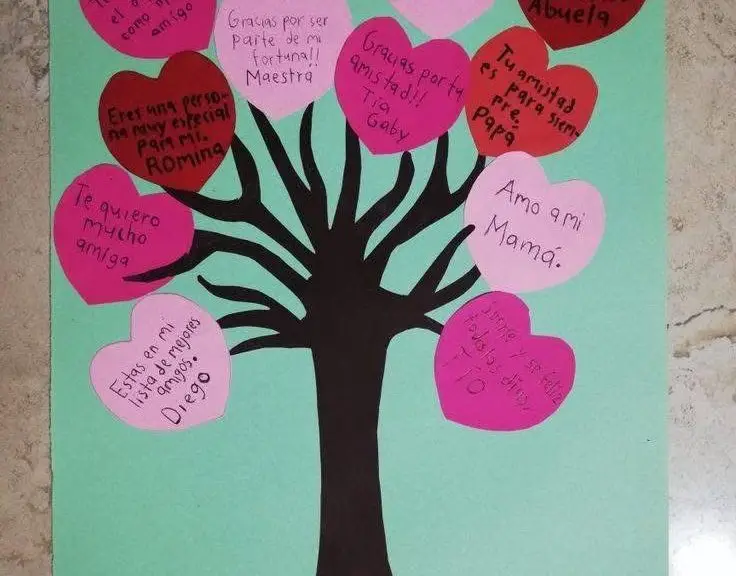 el
como mi
amigo
Gracias por ser
parte de mi
fortuna!!
Maestra
Abuela
Gracias por tu
amistad!!
Tía
Gaby
Tu amistad
es para siem-
pre.
Papá
Eres una perso-
na muy especial
para mi.
ROMINA
Te quiero
mucho
amiga
Amo a mi
Mamá.
Estas en mi
lista de mejores
amigos.
Diego
Sonrie y se feliz
todos los días,
TÍO